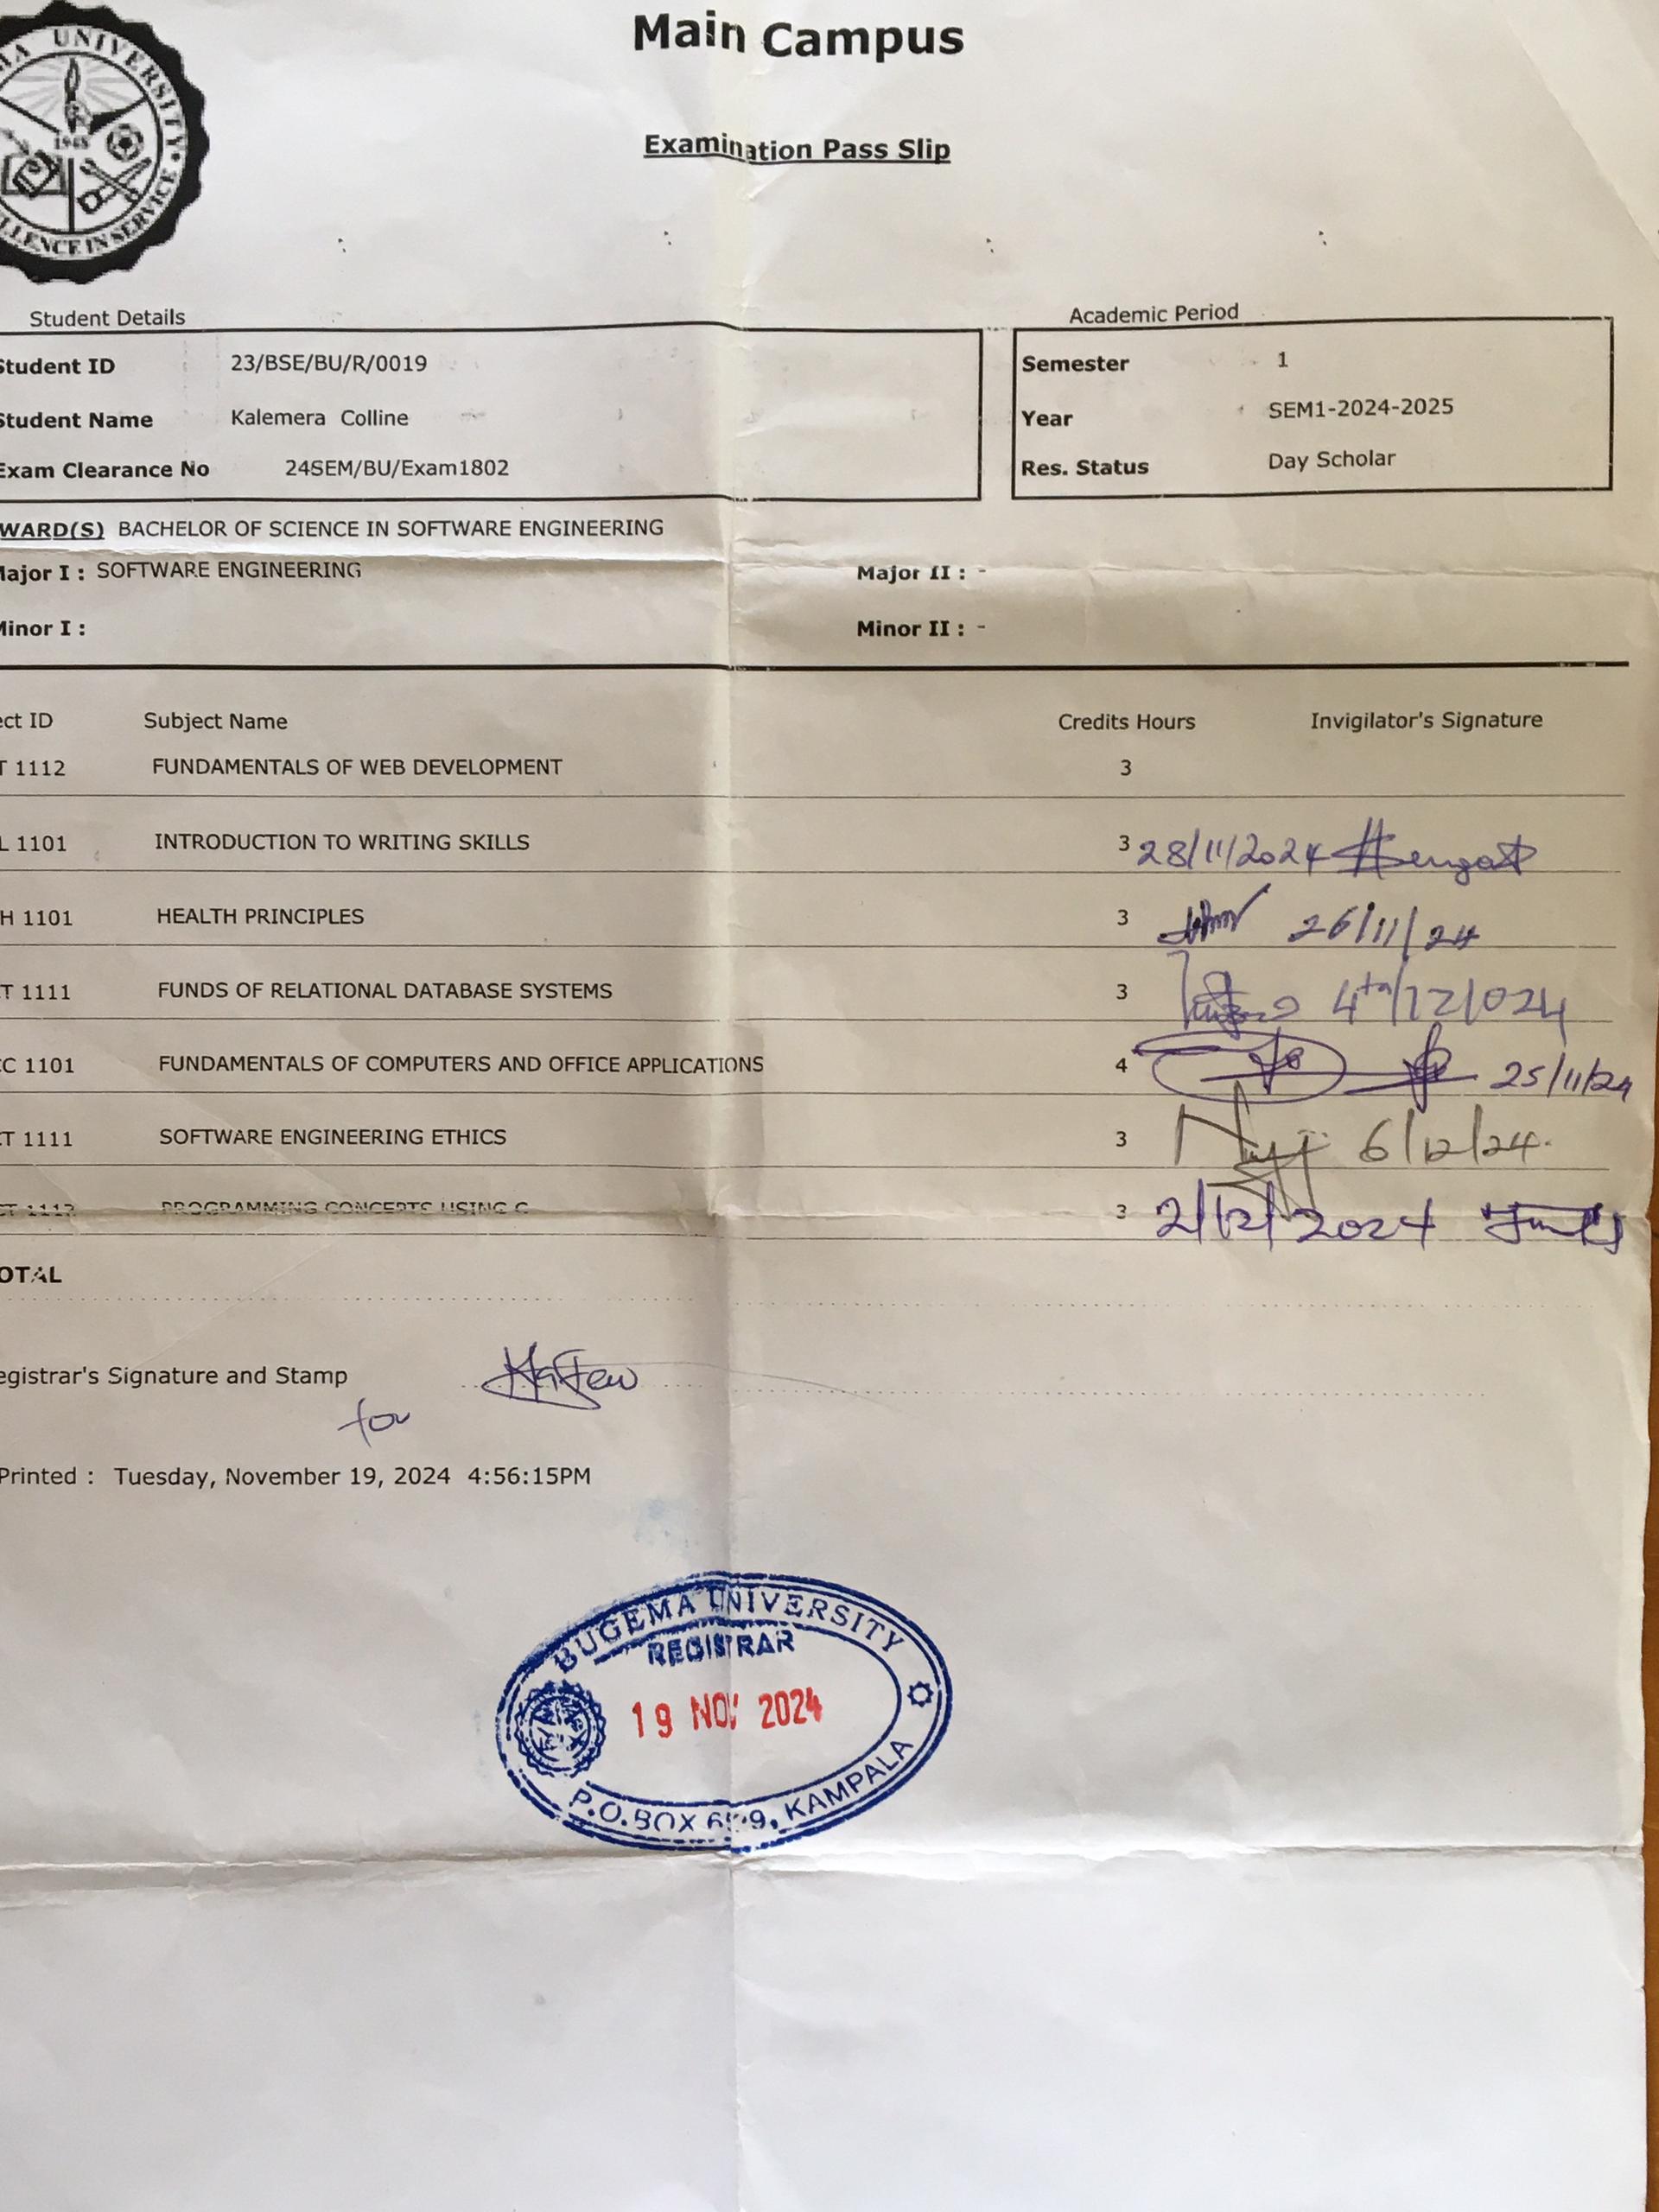 MA UNIVERSITY
1948
LLENCE IN SERVICE
Main Campus
Examination Pass Slip
Student Details
Academic Period
Student ID 23/BSE/BU/R/0019
Semester 1
Student Name Kalemera Colline
Year SEM1-2024-2025
Exam Clearance No 24SEM/BU/Exam1802
Res. Status Day Scholar
WARD(S) BACHELOR OF SCIENCE IN SOFTWARE ENGINEERING
Major I : SOFTWARE ENGINEERING Major II : -
Minor I : Minor II : -
ect ID Subject Name Credits Hours Invigilator's Signature
T 1112 FUNDAMENTALS OF WEB DEVELOPMENT 3
L 1101 INTRODUCTION TO WRITING SKILLS 3 28/11/2024
H 1101 HEALTH PRINCIPLES 3 26/11/24
T 1111 FUNDS OF RELATIONAL DATABASE SYSTEMS 3 4th/12/024
C 1101 FUNDAMENTALS OF COMPUTERS AND OFFICE APPLICATIONS 4 25/11/24
T 1111 SOFTWARE ENGINEERING ETHICS 3 6/12/24.
CT 1113 PROGRAMMING CONCEPTS USING C 3 2/12/2024
OTAL
egistrar's Signature and Stamp
for
Printed : Tuesday, November 19, 2024 4:56:15PM
BUGEMA UNIVERSITY
REGISTRAR
19 NOV 2024
P.O.BOX KAMPALA